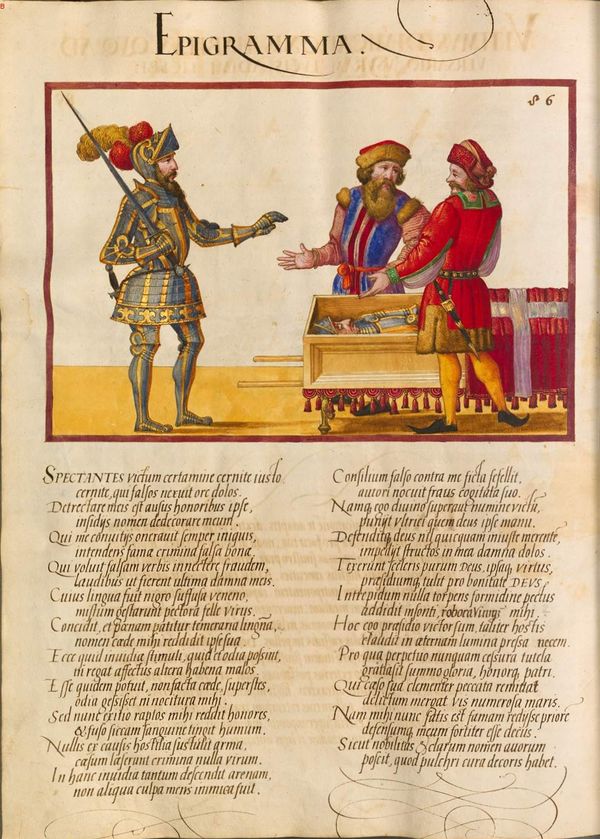 EPIGRAMMA.
86
SPECTANTES victum certamine cernite iusto,
cernite, qui falsos nexuit ore dolos.
Detrectare meis est ausus honoribus ipse,
insidijs nomen dedecorare meum.
Qui me conuitijs onerauit semper iniquis,
intendens fama crimina falsa bona.
Qui voluit falsam verbis innectere fraudem,
laudibus ut fierent ultima damna meis.
Cuius lingua fuit nigro suffusa veneno,
mistum gestarunt pectora felle virus.
Concidit, et pœnam patitur temeraria lingua,
nomen cæde mihi reddidit ipse sua.
Ecce quid inuidia stimuli, quid et odia possint,
ni regat affectus altera habena malos.
Esse quidem potuit, non facta cæde, superstes,
odia gessisset ni nocitura mihi.
Sed nunc extincto raptos mihi reddit honores,
& fuso siccam sanguine tingit humum.
Nullis ex causis hostilia sustulit arma,
casum læserunt crimina nulla virum.
In hanc inuidia tantum descendit arenam,
non aliqua culpa mens inimica fuit.
Consilium falso contra me ficta fefellit,
autori nocuit fraus cogitata suo.
Namq, ego diuino superaui numine victum,
puniit ultrici quem deus ipse manu.
Defendit deus nil quicquam iniuste merente,
impellit structos in mea damna dolos.
Texerunt sceleris purum Deus, ipsaq, virtus,
præsidiumq, tulit pro bonitate DEVS.
Intrepidum nulla torpens formidine pectus
addidit insonti, robora mihi.
Hoc ego præsidio victor sum, taliter hostis
claudit in æternam lumina pressa necem.
Pro qua perpetuo nunquam cessura tutela
gratia sit summo gloria, honorq, patri.
Qui cæso sud clementer peccata remittat
delictum mergat vis numerosa maris.
Nam mihi nunc satis est famam redijsse priorem
defensumq, meum fortiter esse decus.
Sicut nobilitas & clarum nomen auorum
poscit, quod pulchri cura decoris habet.